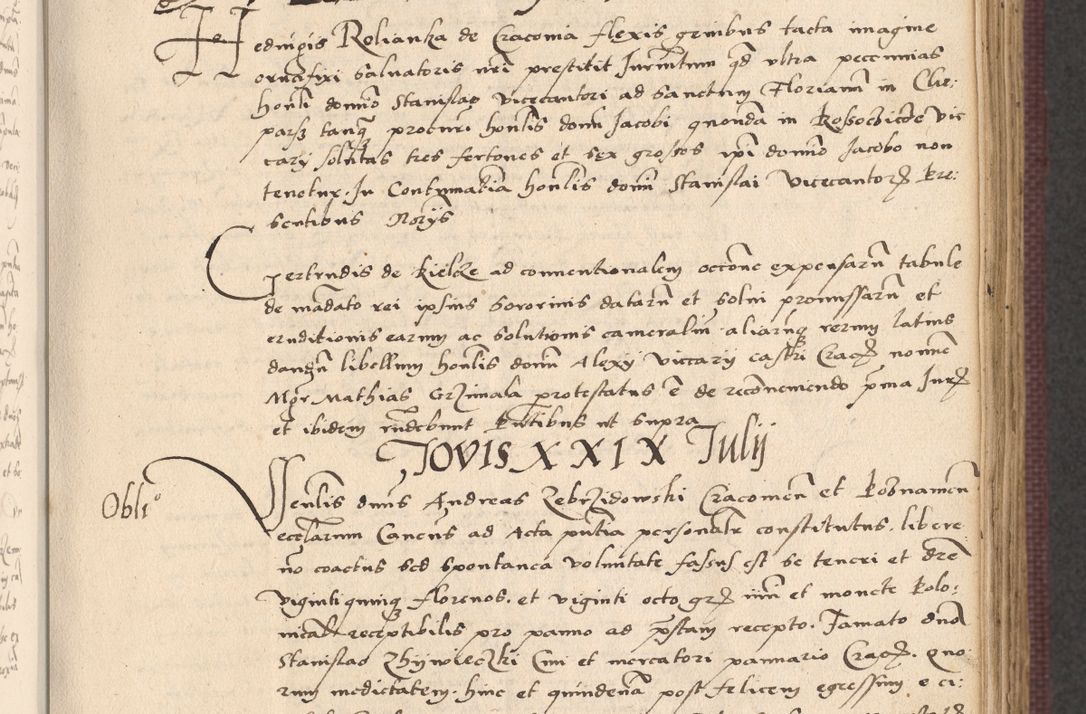 Hedvigis Rolianka de Cracovia flexis genibus tacta imagine
crucifixi Salvatoris nri prestitit Iurmtum qd ultra peccunias
honli domino Stanislao vicecantori ad Sanctum Florianū in Cle:
parz tanqz procurī honlis domī Iacobi quondā in Kossocicze vic
carij solutas tres fertones et sex grossos ipi domino Iacobo non
tenetur. In Contumatia honlis domī Stanislai vicecantorz Pre:
sentibus Norijs
Gertrudis de Kielcze ad conventionalem occone expensarū tabule
de mādato rei ipsius sororinis datarū et solvi promissarū et
eruditionis earum ac solutionis cameraliū aliarūqz rerum latius
dandū libellum honlis domī Alexij viccarij castri Cracz nomine
Mgr Mathias Grzimala protestatus ē de reconvenendo pma Iurz
et ibidem rndebunt Pntibus ut supra
IOVIS XXIX Iulij
Oblio
Venlis dnus Andreas Zebrzidowski Cracovien et Posnanien
ecclarum Cancus ad Acta pntia personalr constitutus. libere
nō coactus sed spontanea voluntate fassus est se teneri et dre
viginti quinqz florenos. et viginti octo grz in et monete Polo:
nicalr receptibilis pro panno ad pstam recepto. Famato dno
Stanislao Zhijwieczki Civi et mercatori pannario Cracz. quo
rum medietatem. hinc et quindenā post felicem egressum e ci: